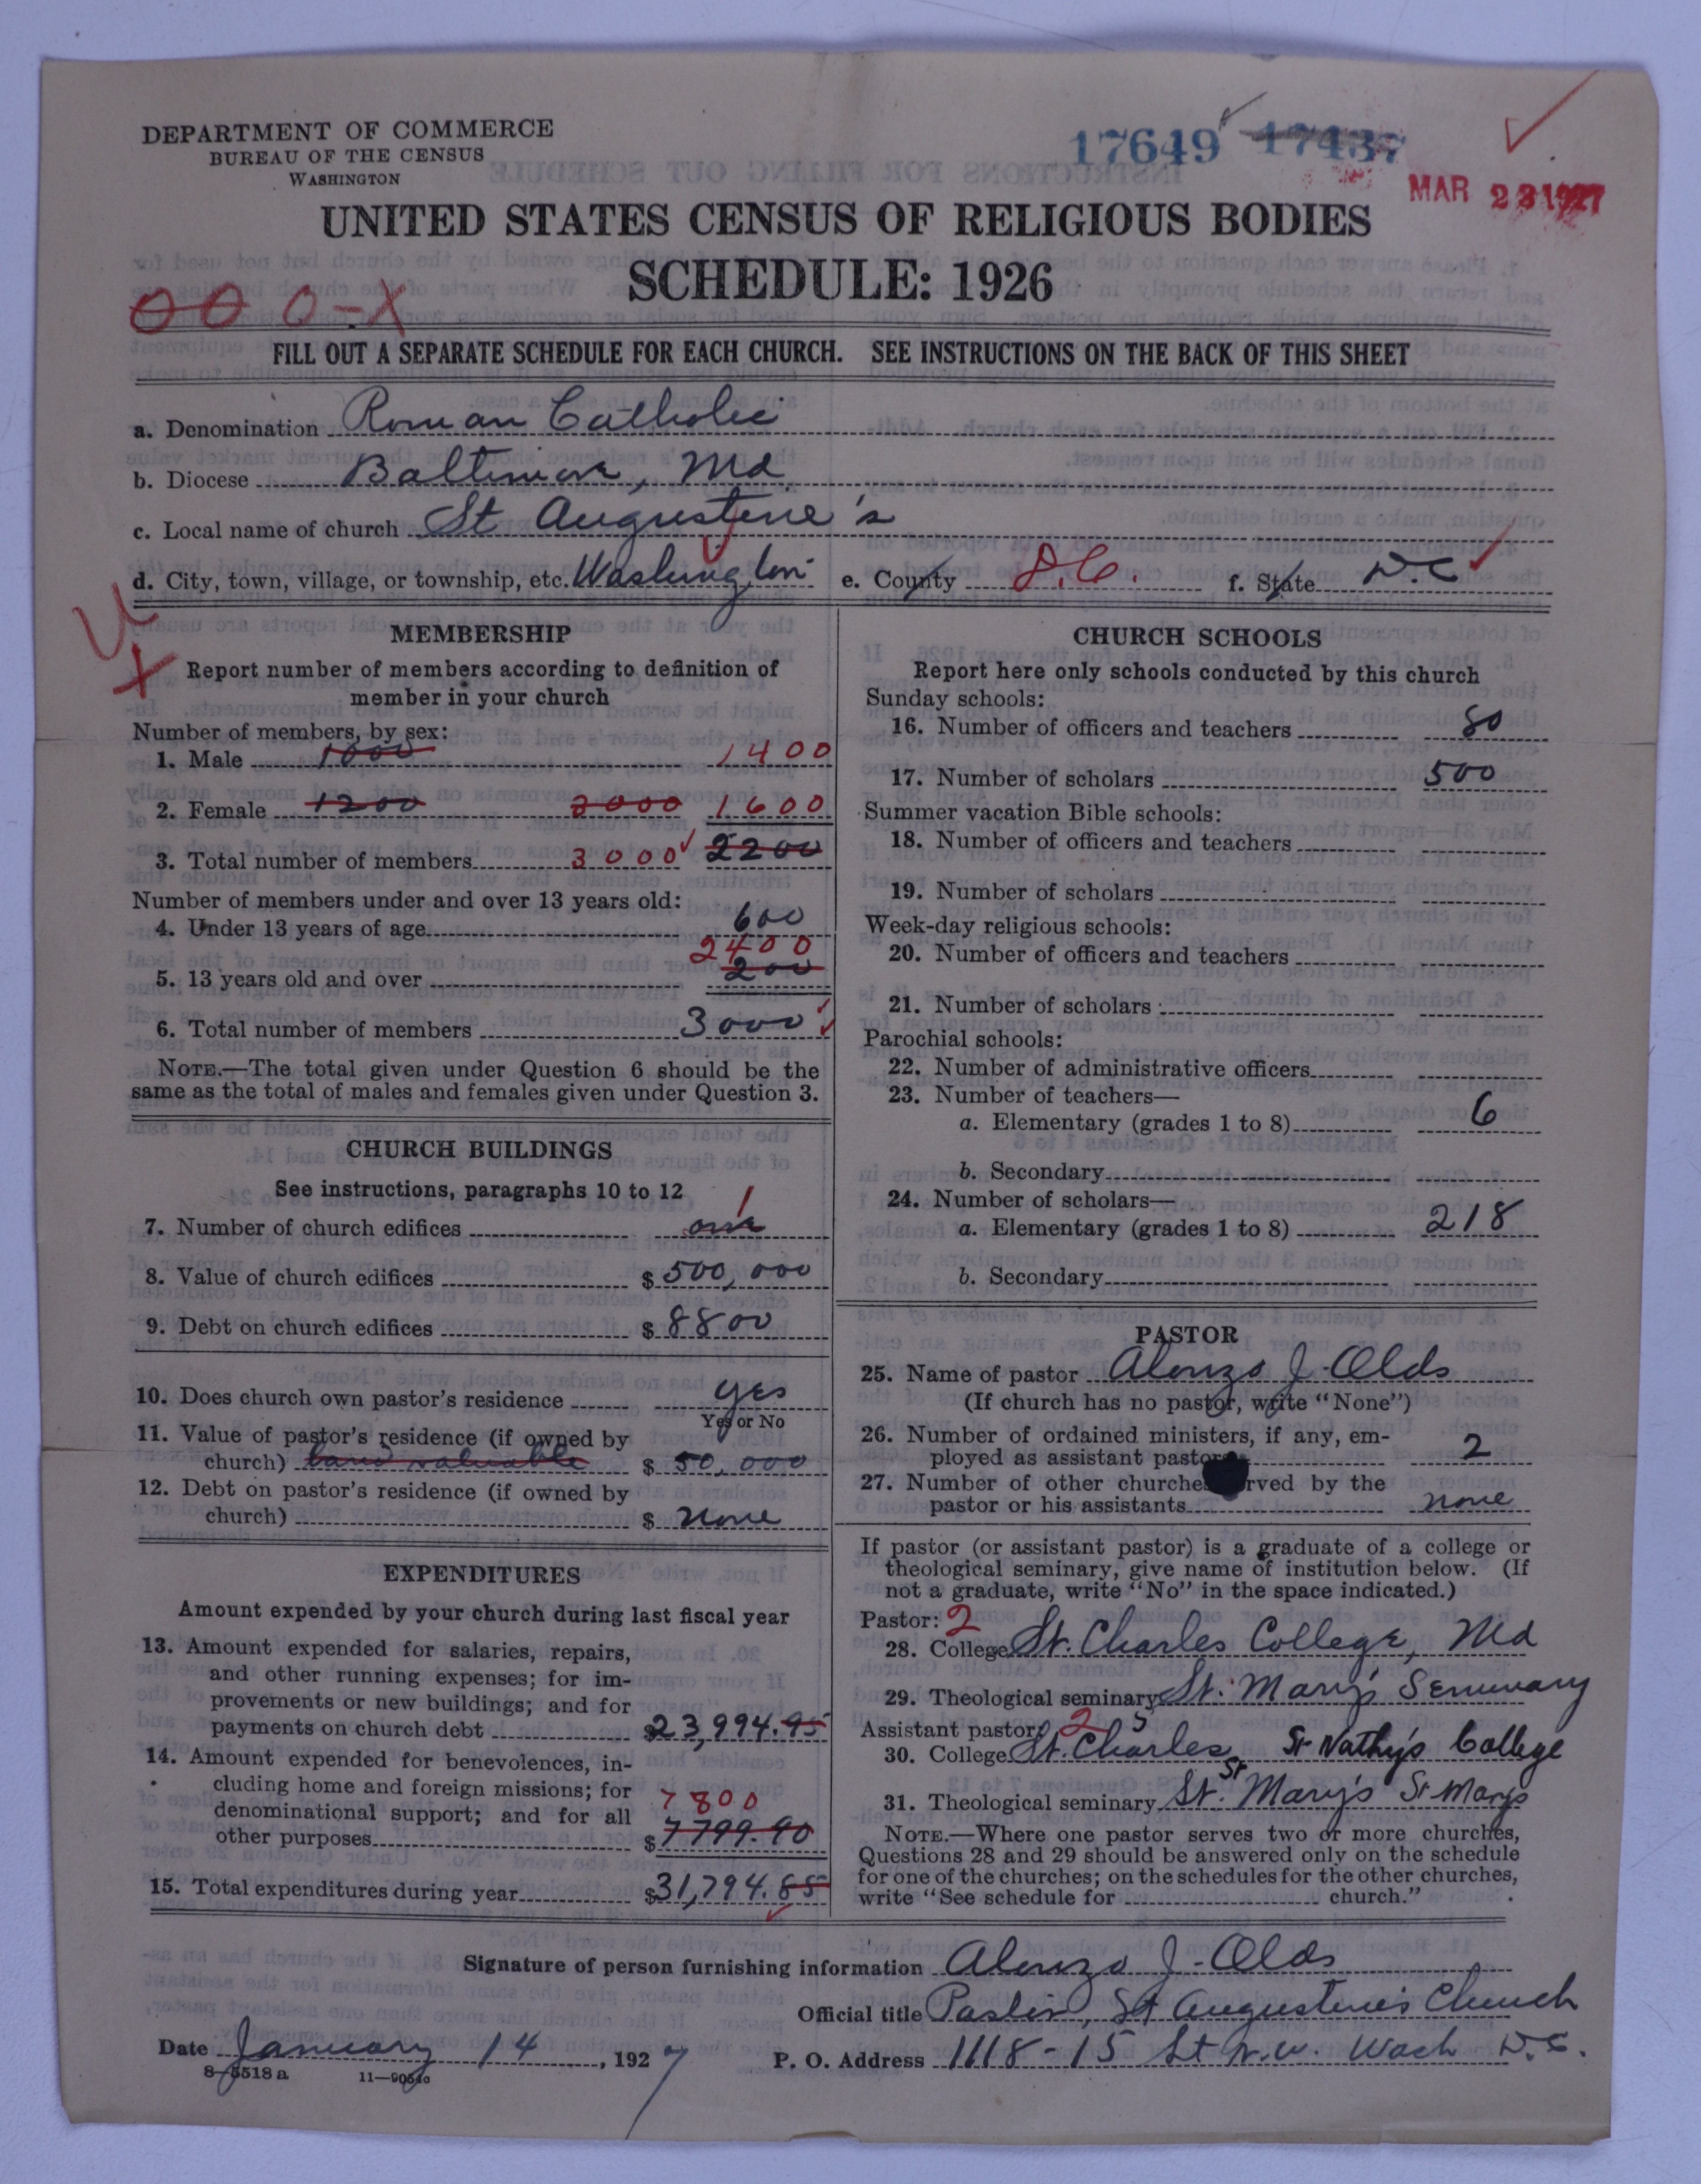 DEPARTMENT OF COMMERCE
BUREAU OF THE CENSUS
WASHINGTON
17649 17437
MAR 23 1927
UNITED STATES CENSUS OF RELIGIOUS BODIES
SCHEDULE: 1926
000-X
FILL OUT A SEPARATE SCHEDULE FOR EACH CHURCH. SEE INSTRUCTIONS ON THE BACK OF THIS SHEET
a. Denomination Roman Catholic
b. Diocese Baltimore, Md.
c. Local name of church St Augustine's
d. City, town, village, or township, etc. Washington e. County D.C. f. State D.C
MEMBERSHIP
Report number of members according to definition of
member in your church
Number of members, by sex:
1. Male 1000 1400
2. Female 1200 2000 1600
3. Total number of members 3000 2200
Number of members under and over 13 years old:
4. Under 13 years of age 600
2400
5. 13 years old and over 200
6. Total number of members 3000
NOTE.—The total given under Question 6 should be the
same as the total of males and females given under Question 3.
CHURCH BUILDINGS
See instructions, paragraphs 10 to 12
1
7. Number of church edifices one
8. Value of church edifices $ 500,000
9. Debt on church edifices $ 8800
10. Does church own pastor's residence yes
Yes or No
11. Value of pastor's residence (if owned by
church) $ 50,000
12. Debt on pastor's residence (if owned by
church) $ none
EXPENDITURES
Amount expended by your church during last fiscal year
13. Amount expended for salaries, repairs,
and other running expenses; for im-
provements or new buildings; and for
payments on church debt $23,994.95
14. Amount expended for benevolences, in-
cluding home and foreign missions; for
7800
denominational support; and for all
other purposes $7799.90
15. Total expenditures during year $31,794.85
CHURCH SCHOOLS
Report here only schools conducted by this church
Sunday schools:
16. Number of officers and teachers 80
17. Number of scholars 500
Summer vacation Bible schools:
18. Number of officers and teachers
19. Number of scholars
Week-day religious schools:
20. Number of officers and teachers
21. Number of scholars
Parochial schools:
22. Number of administrative officers
23. Number of teachers—
a. Elementary (grades 1 to 8) 6
b. Secondary
24. Number of scholars—
a. Elementary (grades 1 to 8) 218
b. Secondary
PASTOR
25. Name of pastor Alonzo J. Olds
(If church has no pastor, write "None")
26. Number of ordained ministers, if any, em-
ployed as assistant pastors 2
27. Number of other churches served by the
pastor or his assistants none
If pastor (or assistant pastor) is a graduate of a college or
theological seminary, give name of institution below. (If
not a graduate, write "No" in the space indicated.)
Pastor: 2
28. College St. Charles College, Md
29. Theological seminary St. Mary's Seminary
Assistant pastor: 2
30. College St. Charles, St Nathy's College
31. Theological seminary St. Mary's St Marys
NOTE.—Where one pastor serves two or more churches,
Questions 28 and 29 should be answered only on the schedule
for one of the churches; on the schedules for the other churches,
write "See schedule for church."
Signature of person furnishing information Alonzo J. Olds
Official title Pastor, St Augustine's Church
Date January 14, 1927 P. O. Address 1118-15 St N.W. Wash D.C.
8-5518a 11-9054c